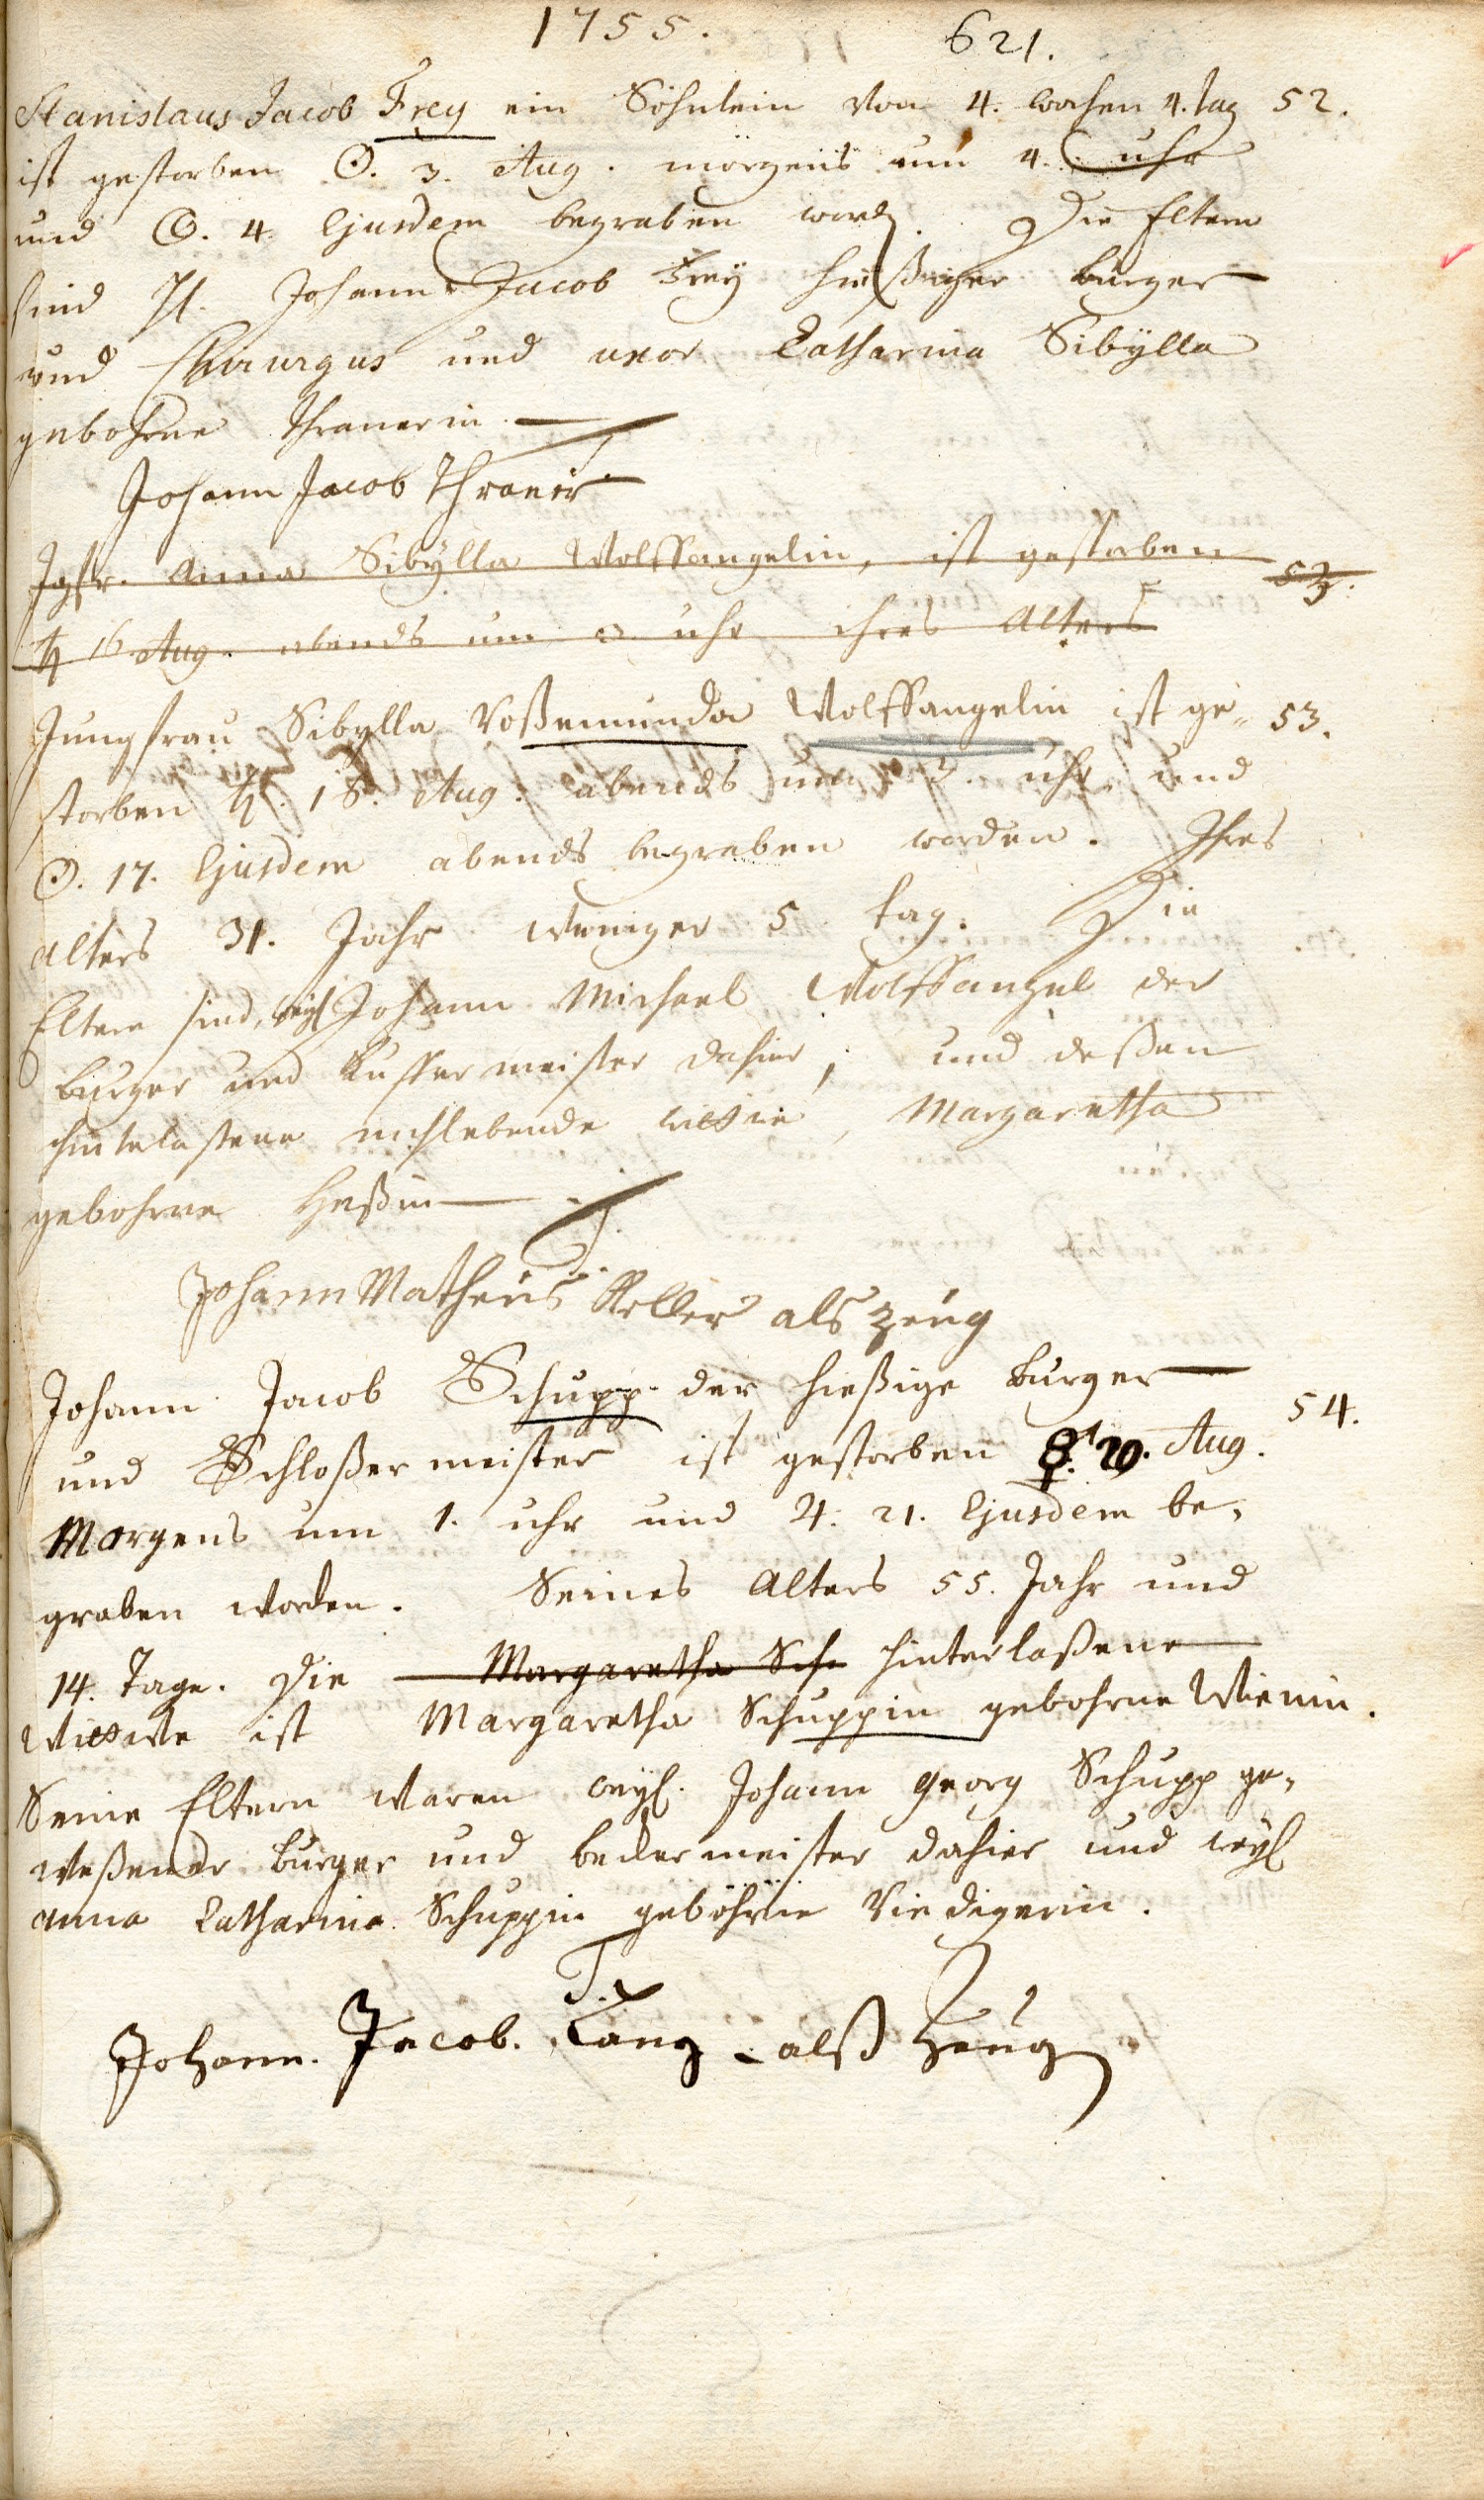 1755. 621.
Stanislaus Jacob Frey ein Söhnlein von 4. wochen 4. tag 52.
ist gestorben ☉. 3. Aug. morgens um 4. uhr
und 4. Ejusdem begraben word. Die Eltern
sind H. Johann Jacob Frey hießiger burger
und Chirurgus und uxor Catharina Sibÿlla
gebohrne Thranerin.
Johann Jacob Thraner
Jgfr. Anna Sibÿlla Wolffangelin, ist gestorben 53.
♄ 16 Aug. abends um 3 uhr ihres Alters
Jungfrau Sibylla Roßemunda Wolffangelin ist ge- 53.
storben ♄. 16. Aug. abends um 3. uhr und
☉. 17. Ejusdem abends begraben worden. Ihres
alters 31. Jahr weniger 5 tag. Die
Eltern sind, weyl Johann Michael Wolffangel der
burger und Kuffermeister dahier, und deßen
hinterlaßene nochlebende wittwe, Margaretha
gebohrne Heßin
Johann Matheus Keller als zeug
Johann Jacob Schupp der hießige burger
und Schloßermeister ist gestorben 20. Aug. 54.
Morgens um 1. uhr und ♃. 21. Ejusdem be-
graben worden. Seines Alters 55. Jahr und
14. Tage. Die Margaretha Sch hinterlaßene
Wittwe ist Margaretha Schuppin gebohrne
Seine Eltern waren weyl. Johann Georg Schupp ge-
weßener burger und beckermeister dahier und weyl
anna Catharina Schuppin gebohrne Riedigerin.
Johann. Jacob. Lang alß Zeug